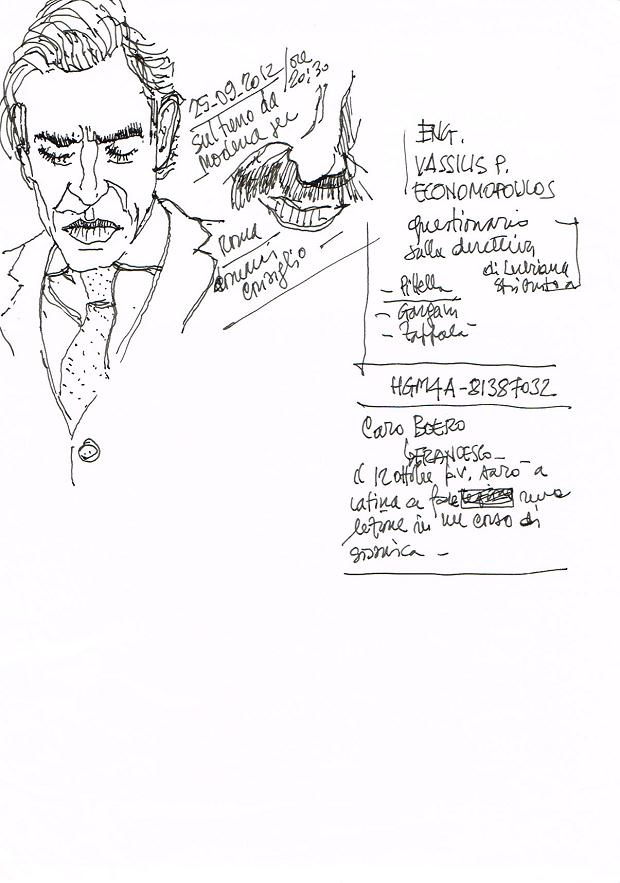 25-09-2012 / ore 20:30
sul treno da
Modena per
Roma
domani
consiglio
ENG.
VASSILIS P.
ECONOMOPOULOS
questionario
sulla direttiva
di Lubiana
- Pittella
- Gargani
- Zappalà
HGM4A-81387032
Caro BOERO
DEFRANCESCO -
il 12 ottobre p.v. sarò a
Latina a fare una
lezione in un corso di
sismica -